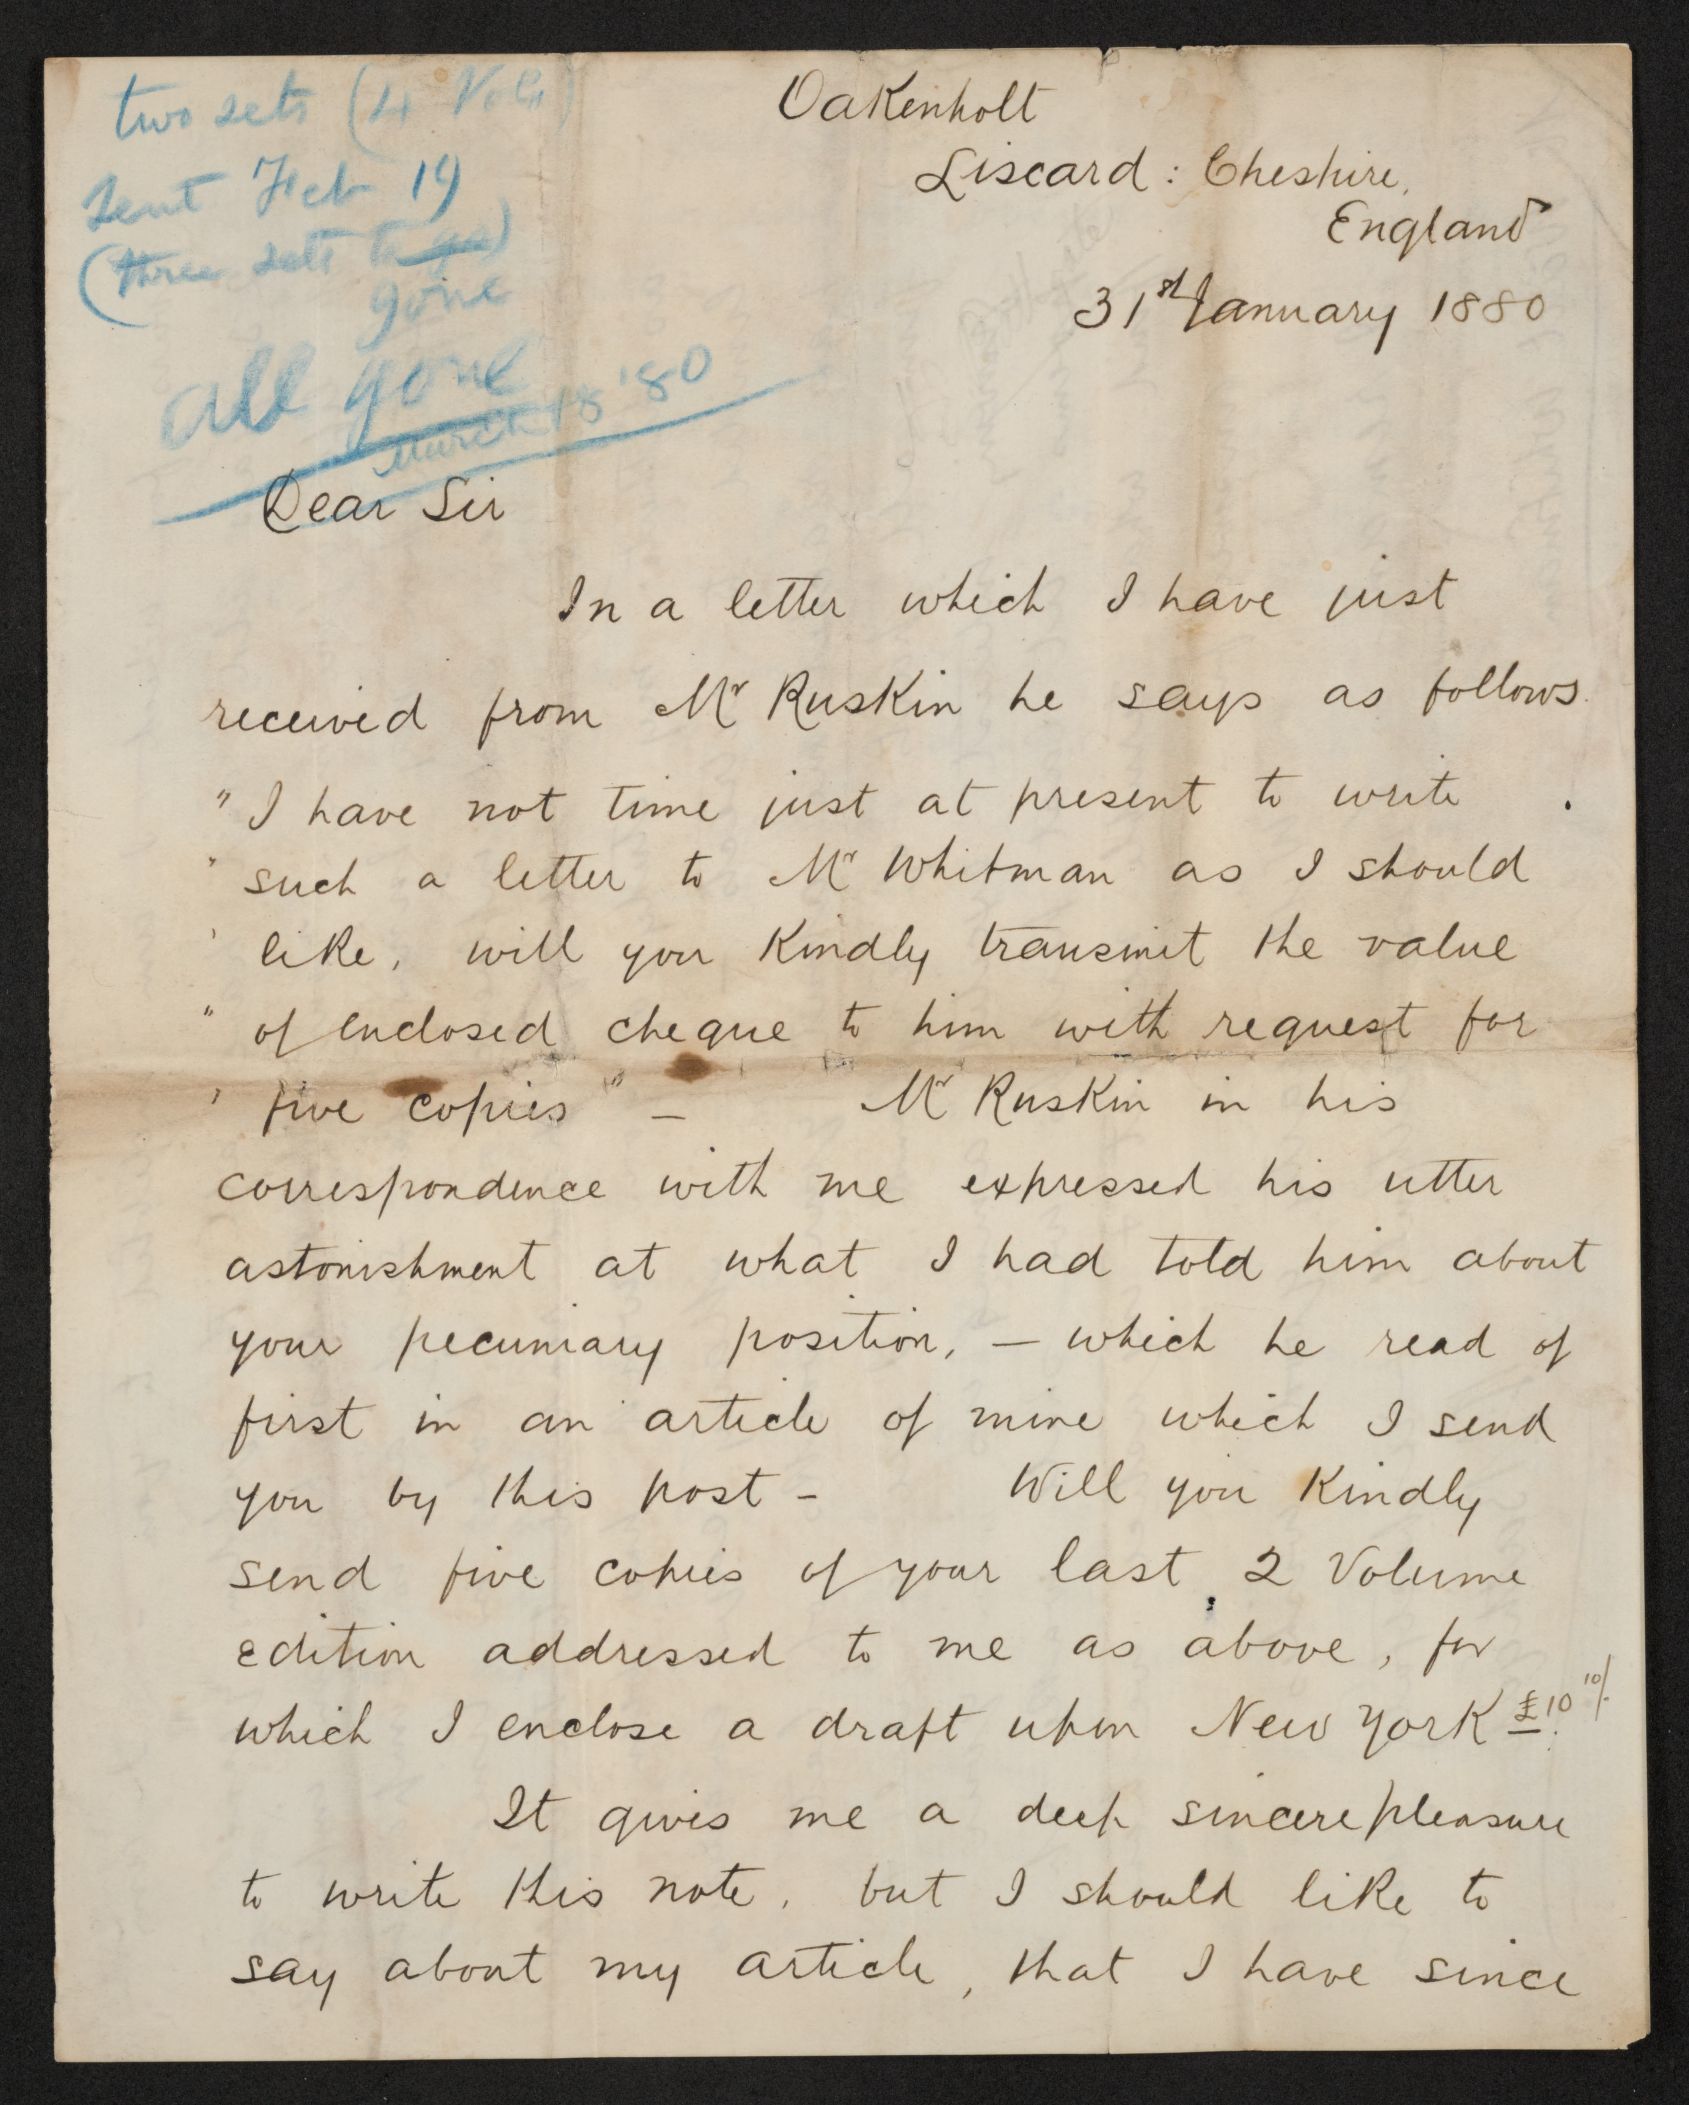 two sets (4 Vols)
sent Feb 19
(three sets to go)
gone
all gone
March 18 '80
Oakenholt
Liscard : Cheshire,
England
31st January 1880
Dear Sir
In a letter which I have just
received from Mr Ruskin he says as follows.
"I have not time just at present to write
" such a letter to Mr Whitman as I should
' like, will you kindly transmit the value
" of enclosed cheque to him with request for
' five copies" — Mr Ruskin in his
correspondence with me expressed his utter
astonishment at what I had told him about
your pecuniary position, — which he read of
first in an article of mine which I send
you by this post — Will you kindly
send five copies of your last 2 Volume
edition addressed to me as above, for
which I enclose a draft upon New York £10.10/.
It gives me a deep sincere pleasure
to write this note, but I should like to
say about my article, that I have since